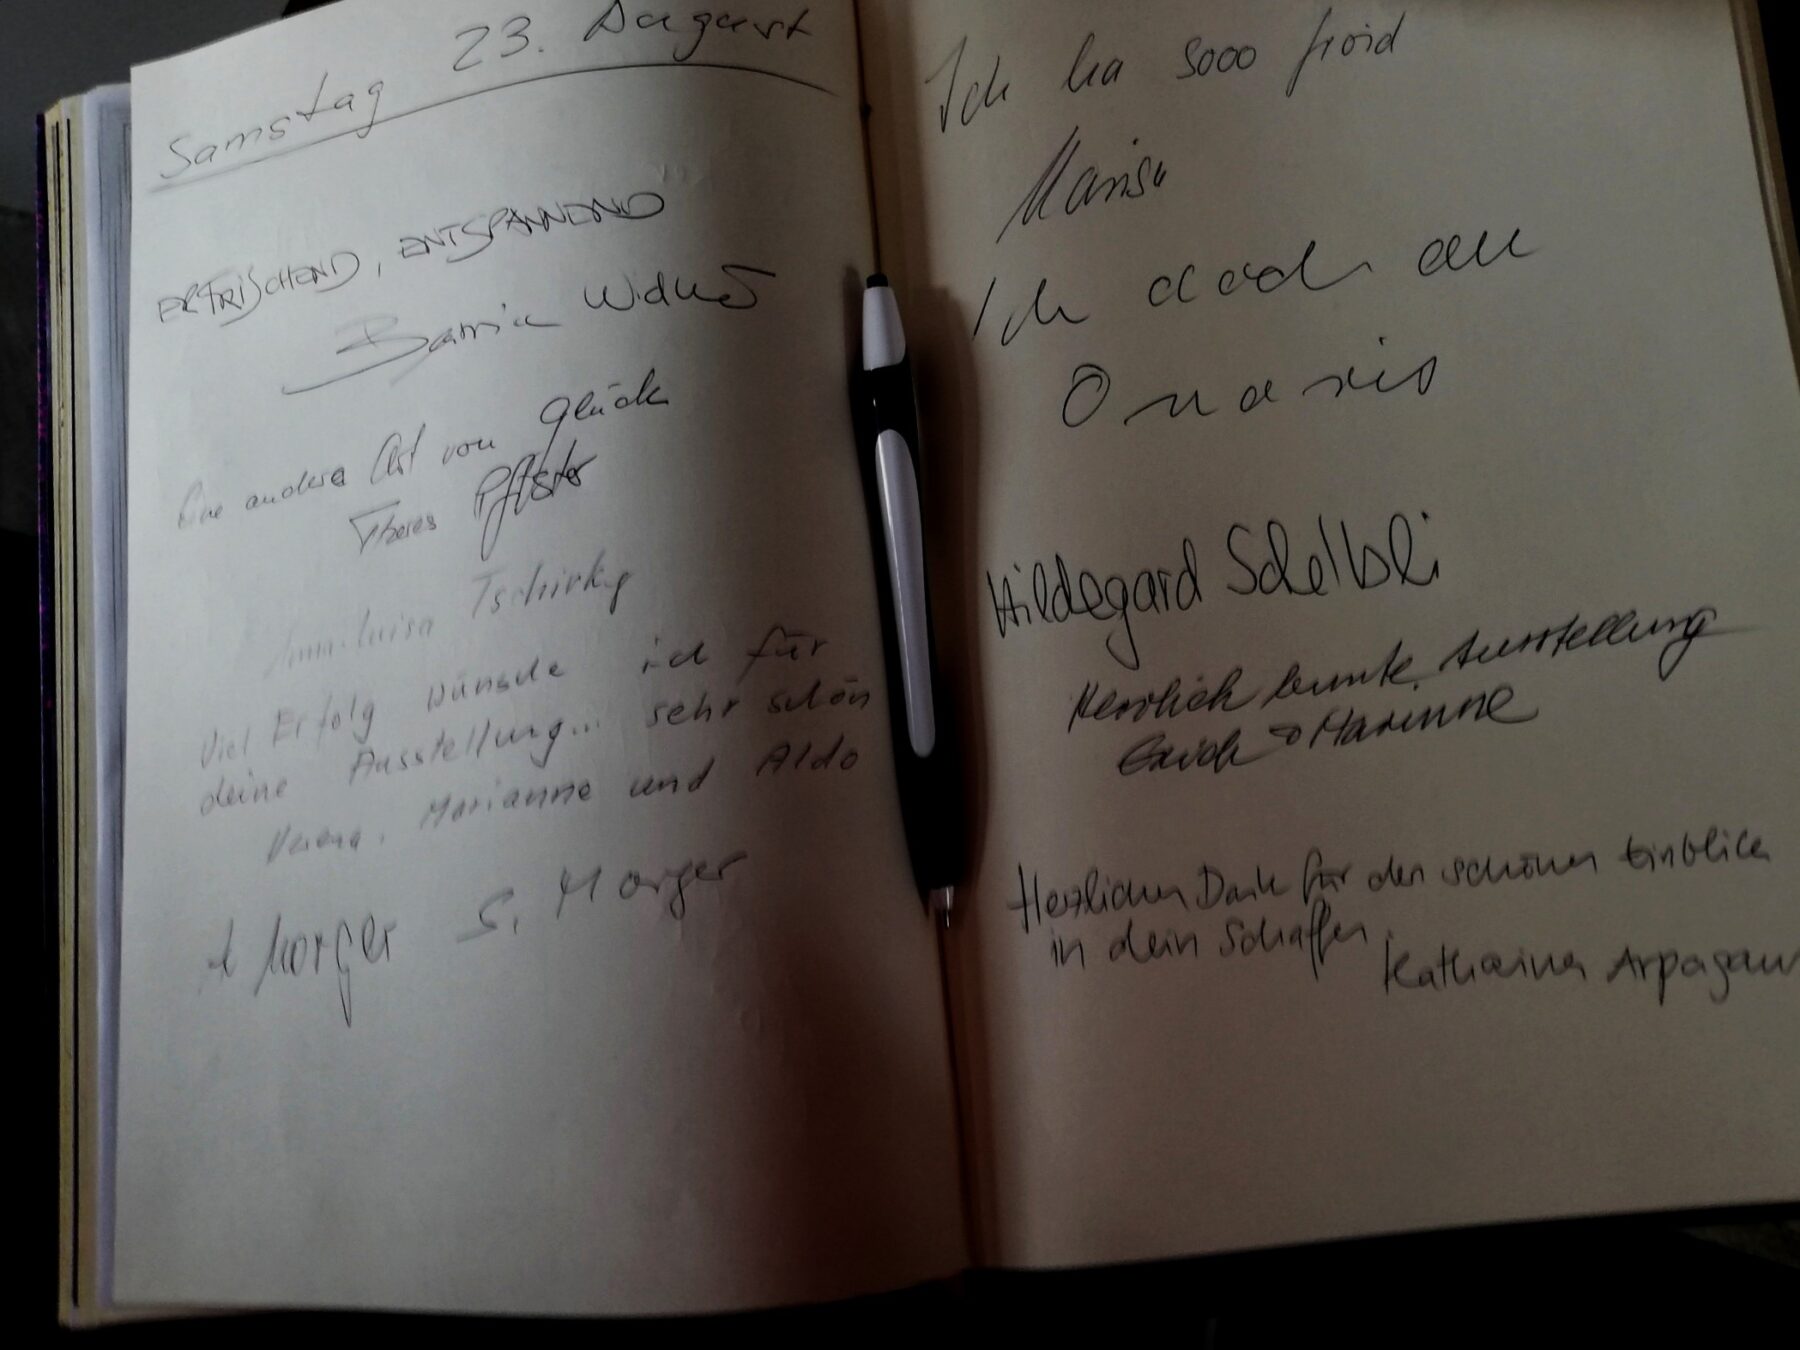 Samstag 23. August
ERFRISCHEND, ENTSPANNEND
Eine andere Art von Glück
Theres Pfister
Anna-Luisa Tschirky
Viel Erfolg wünsche ich für
deine Ausstellung... sehr schön
Verena, Marianne und Aldo
Morger S. Morger
Ich ha sooo froid
Marisa
Ich doch au
Hildegard Schelbli
Herzlich bunte Ausstellung
Erich & Marianne
Herzlichen Dank für den schönen Einblick
in dein Schaffen.
Katharina